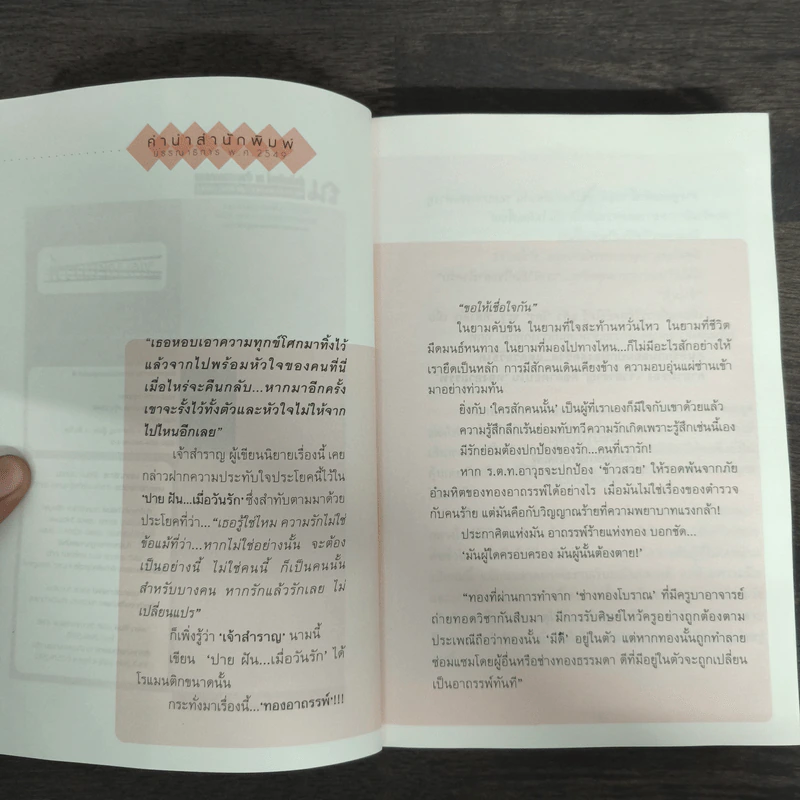 คำนำสำนักพิมพ์
บรรณาธิการ พ.ศ.2549
"เธอหอบเอาความทุกข์โศกมาทิ้งไว้
แล้วจากไปพร้อมหัวใจของคนที่นี่
เมื่อไหร่จะคืนกลับ...หากมาอีกครั้ง
เขาจะรั้งไว้ทั้งตัวและหัวใจไม่ให้จาก
ไปไหนอีกเลย"
เจ้าสำราญ ผู้เขียนนิยายเรื่องนี้ เคย
กล่าวฝากความประทับใจประโยคนี้ไว้ใน
'ปาย ฝัน...เมื่อวันรัก' ซึ่งสำทับตามมาด้วย
ประโยคที่ว่า..."เธอรู้ใช่ไหม ความรักไม่ใช่
ข้อแม้ที่ว่า...หากไม่ใช่อย่างนั้น จะต้อง
เป็นอย่างนี้ ไม่ใช่คนนี้ ก็เป็นคนนั้น
สำหรับบางคน หากรักแล้วรักเลย ไม่
เปลี่ยนแปร"
ก็เพิ่งรู้ว่า 'เจ้าสำราญ' นามนี้
เขียน 'ปาย ฝัน...เมื่อวันรัก' ได้
โรแมนติกขนาดนั้น
กระทั่งมาเรื่องนี้...'ทองอาถรรพ์'!!!
"ขอให้เชื่อใจกัน"
ในยามคับขัน ในยามที่ใจสะท้านหวั่นไหว ในยามที่ชีวิต
มืดมนธ์หนทาง ในยามที่มองไปทางไหน...ก็ไม่มีอะไรสักอย่างให้
เรายึดเป็นหลัก การมีสักคนเดินเคียงข้าง ความอบอุ่นแผ่ซ่านเข้า
มาอย่างท่วมท้น
ยิ่งกับ 'ใครสักคนนั้น' เป็นผู้ที่เราเองก็มีใจกับเขาด้วยแล้ว
ความรู้สึกลึกเร้นย่อมทับทวีความรักเกิดเพราะรู้สึกเช่นนี้เอง
มีรักย่อมต้องปกป้องของรัก...คนที่เรารัก!
หาก ร.ต.ท.อาวุธจะปกป้อง 'ข้าวสวย' ให้รอดพ้นจากภัย
อำมหิตของทองอาถรรพ์ได้อย่างไร เมื่อมันไม่ใช่เรื่องของตำรวจ
กับคนร้าย แต่มันคือกับวิญญาณร้ายที่ความพยาบาทแรงกล้า!
ประกาศิตแห่งมัน อาถรรพ์ร้ายแห่งทอง บอกชัด...
'มันผู้ใดครอบครอง มันผู้นั้นต้องตาย!'
"ทองที่ผ่านการทำจาก 'ช่างทองโบราณ' ที่มีครูบาอาจารย์
ถ่ายทอดวิชากันสืบมา มีการรับศิษย์ไหว้ครูอย่างถูกต้องตาม
ประเพณีถือว่าทองนั้น 'มีดี' อยู่ในตัว แต่หากทองนั้นถูกทำลาย
ซ่อมแซมโดยผู้อื่นหรือช่างทองธรรมดา ดีที่มีอยู่ในตัวจะถูกเปลี่ยน
เป็นอาถรรพ์ทันที"